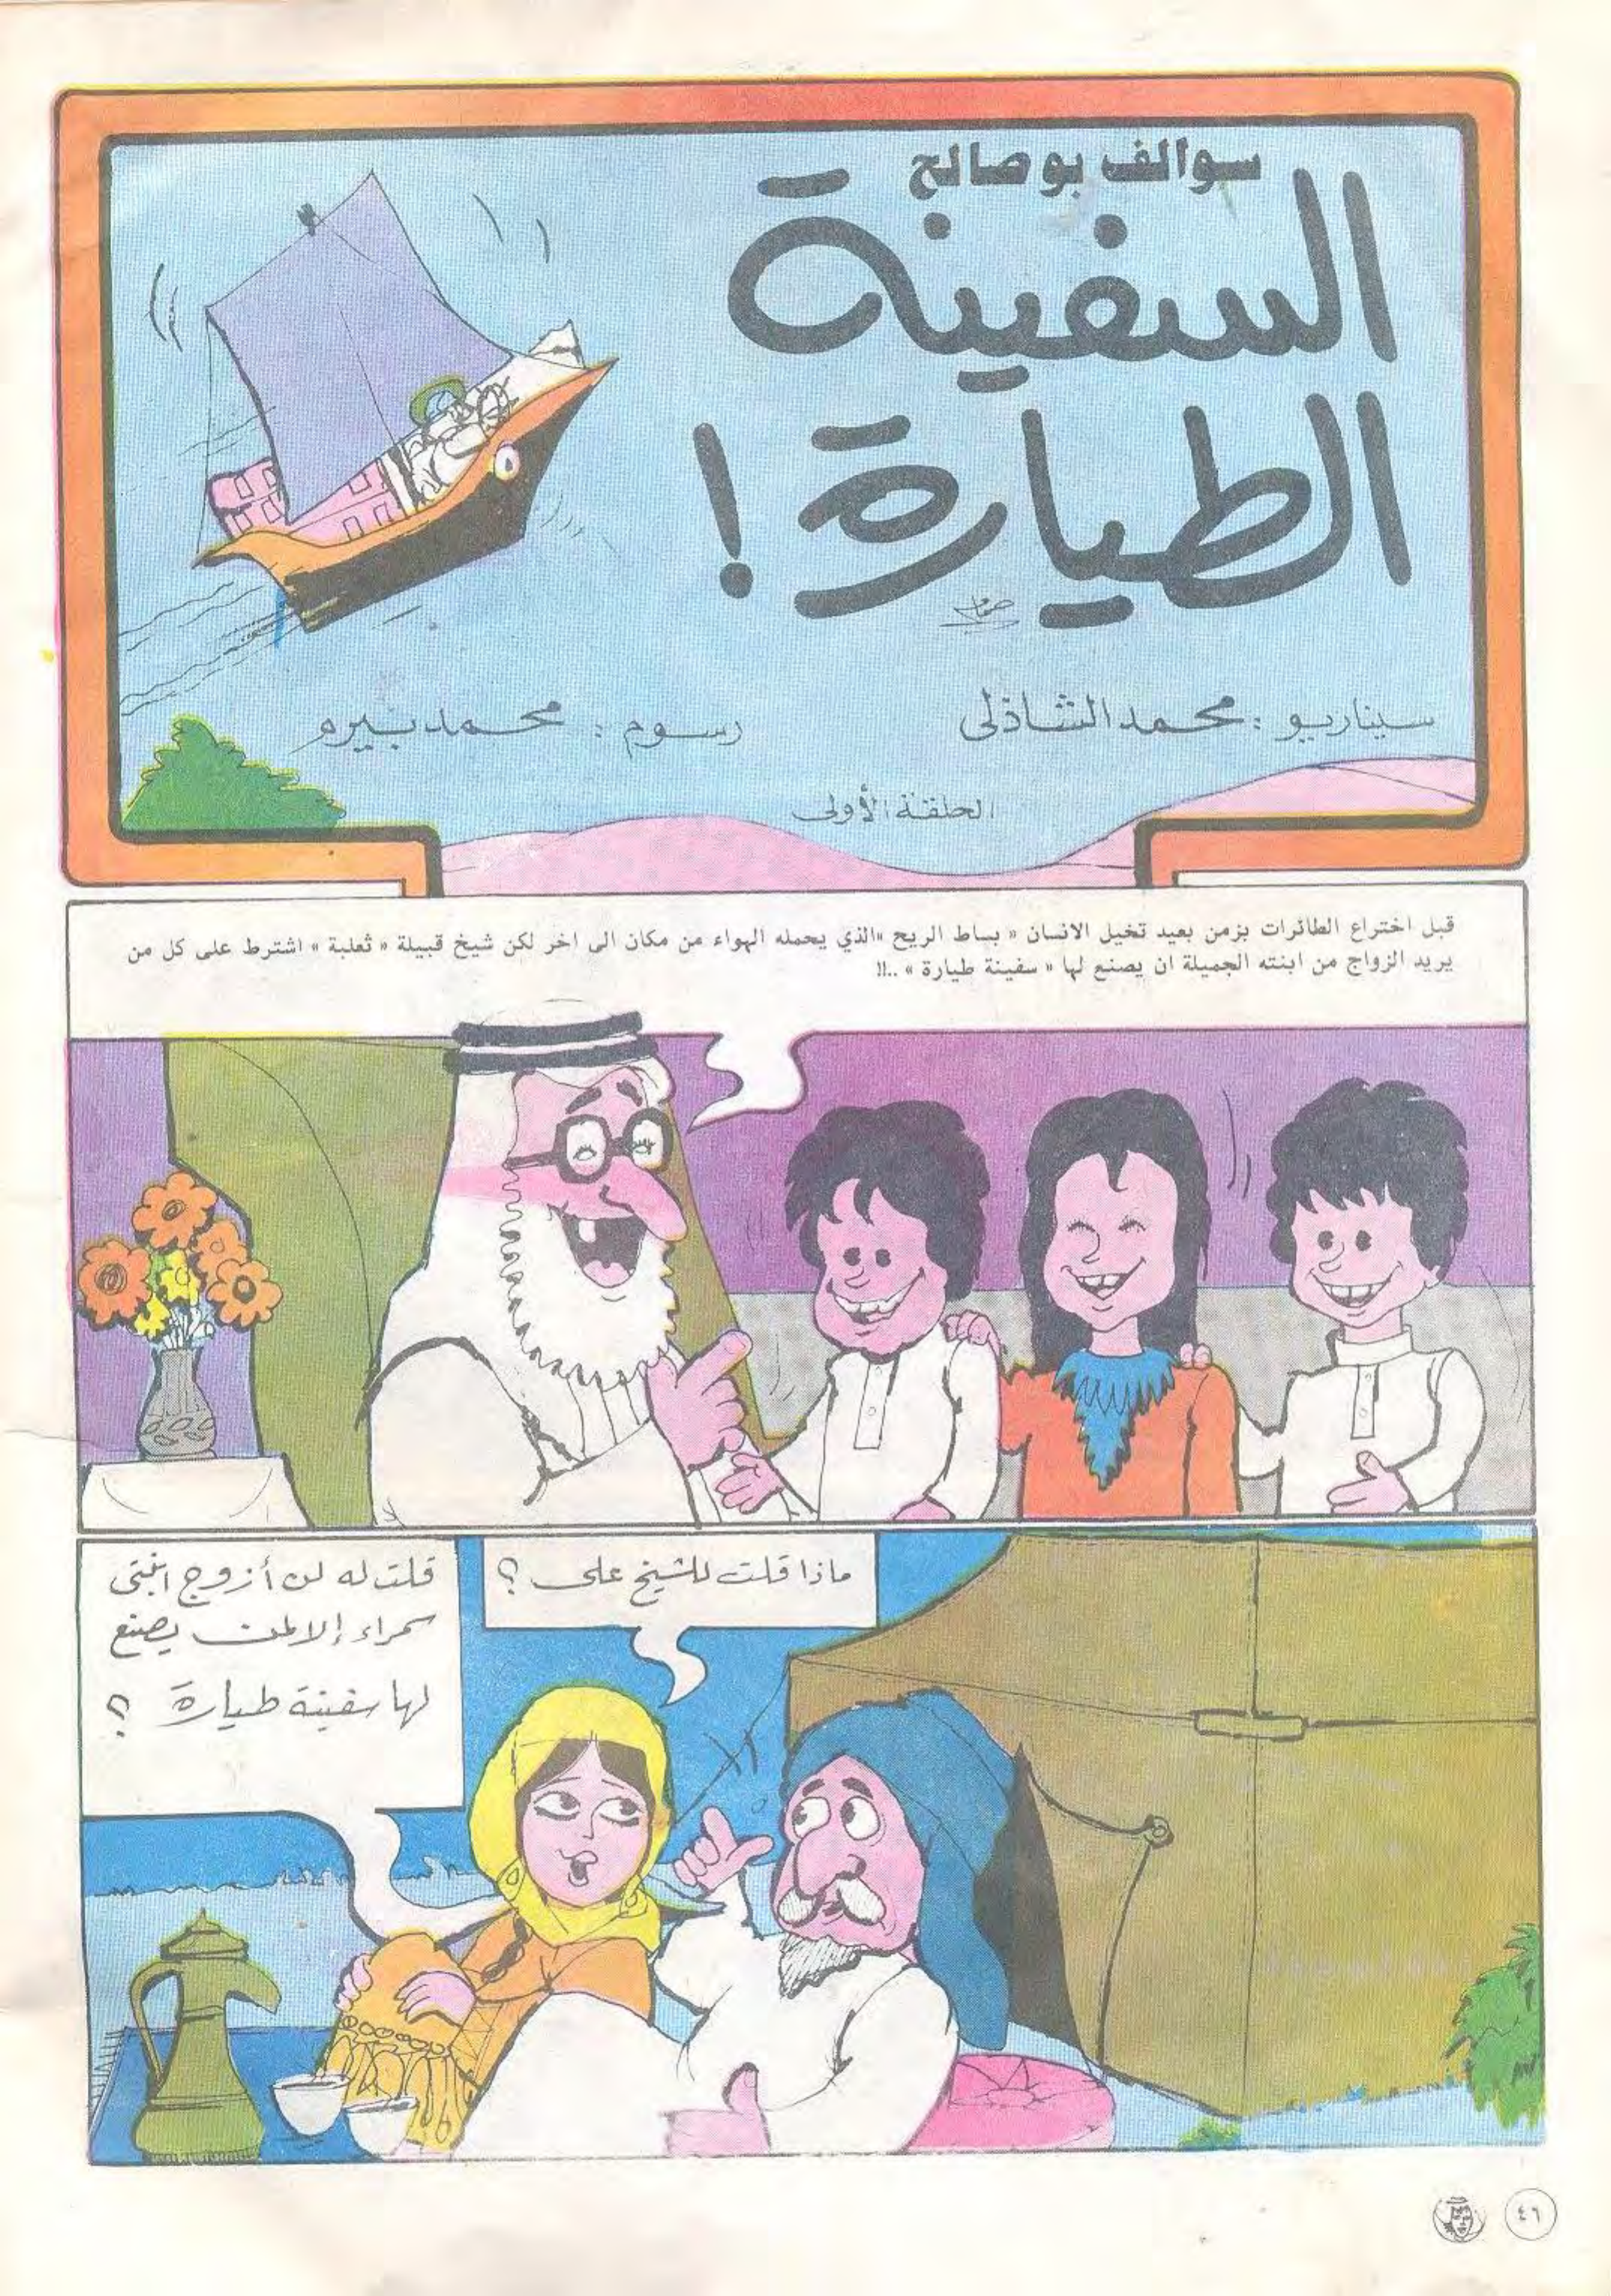 سوالف بو صالح
السفينة
الطيارة !
سيناريو : محمد الشاذلى
رسوم : محمد بيرم
الحلقة الأولى
قبل اختراع الطائرات بزمن بعيد تخيل الانسان « بساط الريح »الذي يحمله الهواء من مكان الى اخر لكن شيخ قبيلة « ثعلبة » اشترط على كل من
يريد الزواج من ابنته الجميلة ان يصنع لها « سفينة طيارة » ..!!
ماذا قلت للشيخ على ؟
قلت له لن أزوج ابنتى
سمراء إلا لمن يصنع
لها سفينة طيارة ؟
٤٦